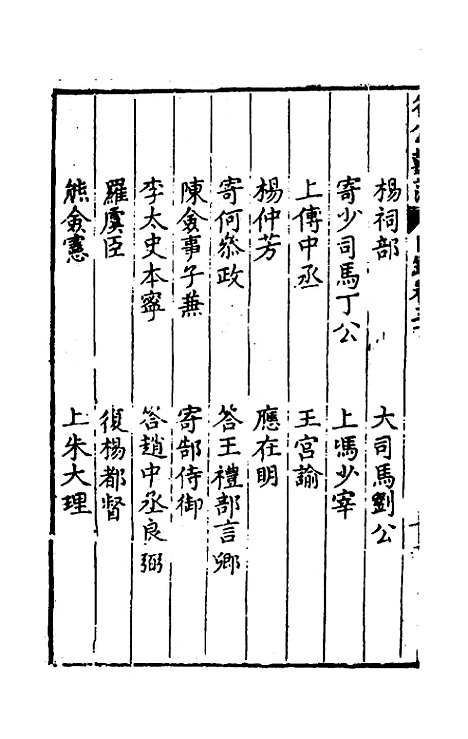 楊祠部 大司馬劉公
寄少司馬丁公 上馮少宰
上傅中丞 王宮諭
楊仲芳 應在明
寄何叅政 答王禮部言卿
陳僉事子兼 寄郜侍御
李太史本寧 答趙中丞良弼
羅虞臣 復楊都督
熊僉憲 上朱大理